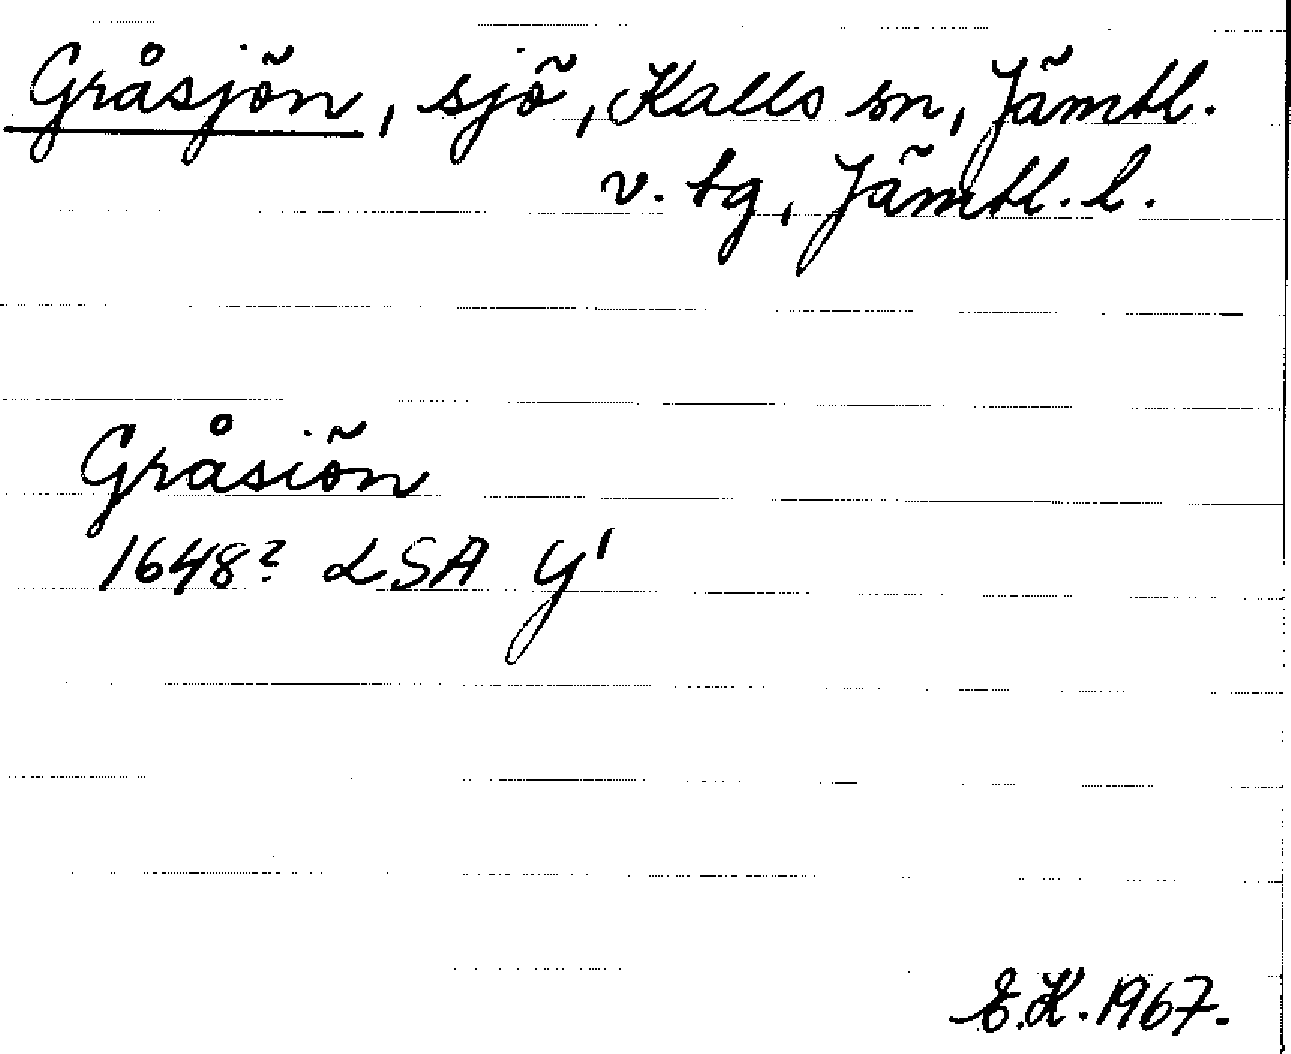 Gråsjön, sjö, Kalls sn, Jämtl.
v. tg, Jämtl. l.
Gråsiön
1648? LSA Y1
E.K. 1967.